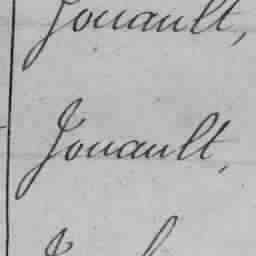 Jouault,
Jouault,